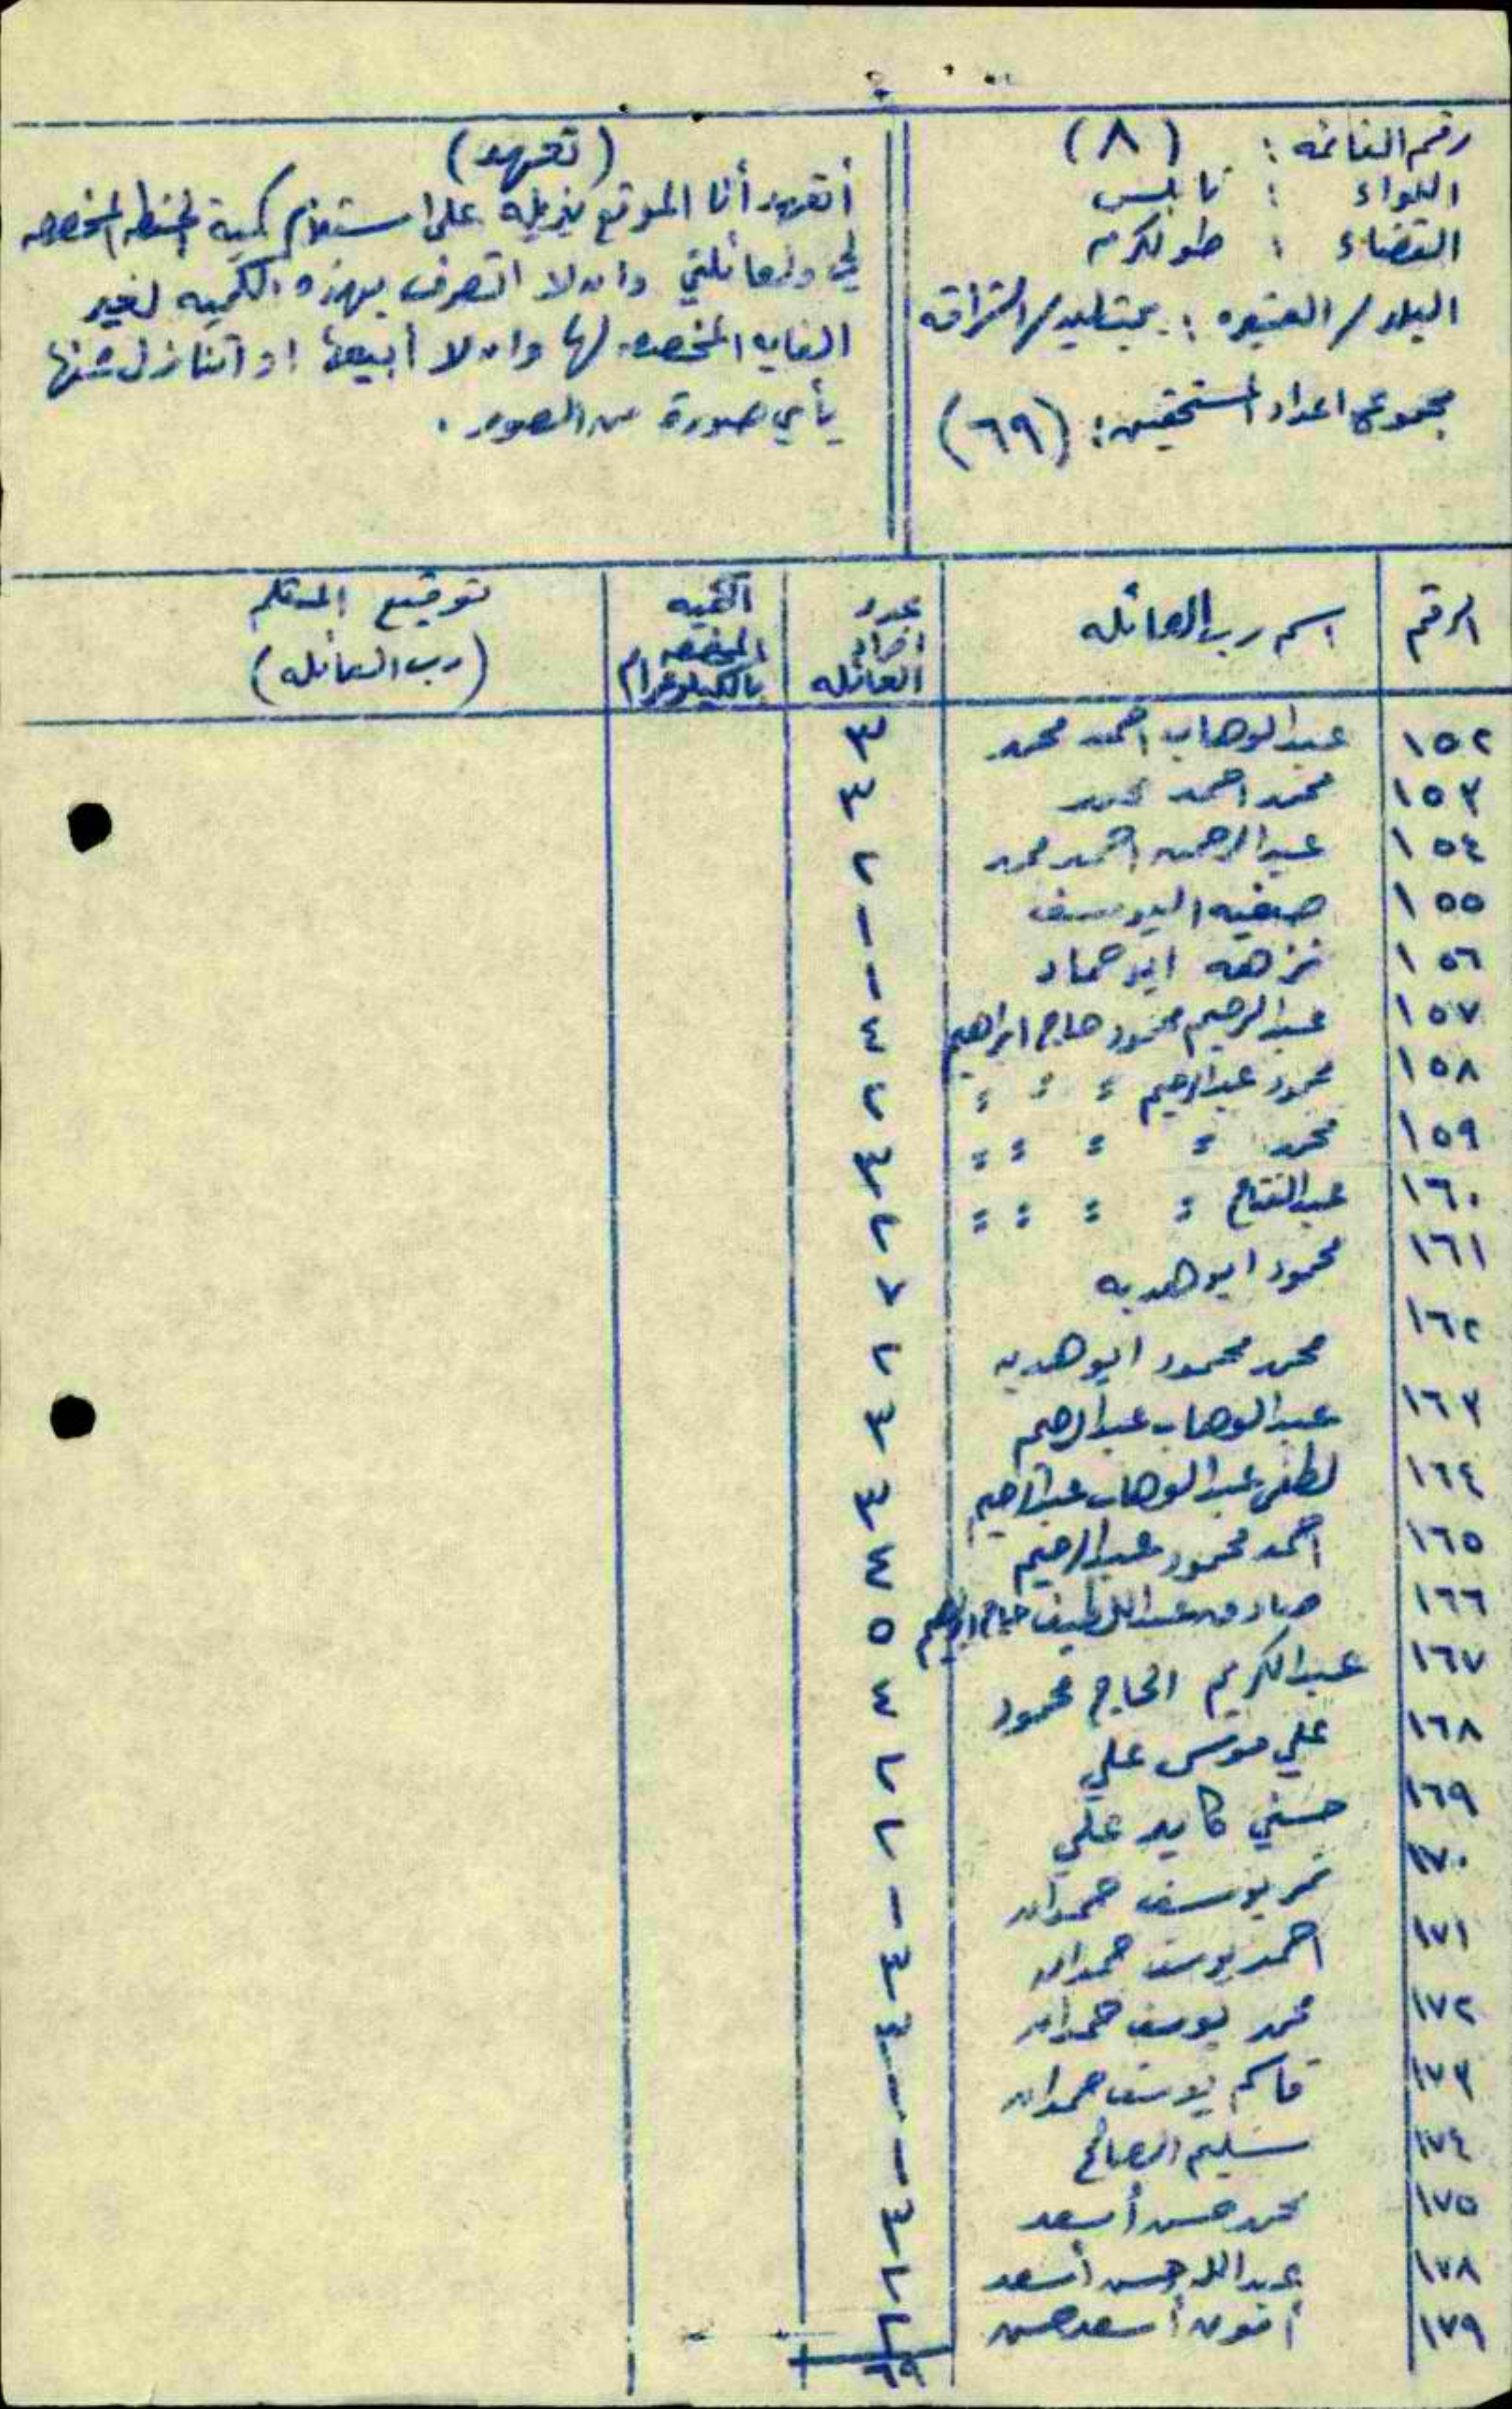 رقم القائمه : (٨)
اللواء : نابلس
القضاء : طولكرم
البلد / العشيره : بيتليد / الشراقه
مجموع اعداد المستحقين : (٦٩)
(تعهد)
أتعهد أنا الموقع بذيله على استلام كمية الحنطه المخصصه
لي ولعائلتي وان لا اتصرف بهذه الكميه لغير
الغايه المخصصه لها وان لا أبيعها او اتنازل عنها
بأي صورة من الصور .
الرقم | اسم رب العائله | عدد افراد العائله | الكميه المخصصه بالكيلوغرام | توقيع المستلم (رب العائله)
١٥٢ عبدالوهاب احمد محمد ٣
١٥٣ محمد احمد محمد ٣
١٥٤ عبدالرحمن احمد محمد ٢
١٥٥ صفيه اليوسف ١
١٥٦ نزهه ابو حماد ١
١٥٧ عبدالرحيم محمود حاج ابراهيم ٤
١٥٨ محمود عبدالرحيم = = = ٢
١٥٩ محمد = = = = ٣
١٦٠ عبدالفتاح = = = = ٢
١٦١ محمود ابو هديه ٧
١٦٢ محمد محمود ابو هديه ٢
١٦٣ عبدالوهاب عبدالرحيم ٣
١٦٤ لطفي عبدالوهاب عبدالرحيم ٣
١٦٥ احمد محمود عبدالرحيم ٤
١٦٦ صادق عبداللطيف حاج ابراهيم ٥
١٦٧ عبدالكريم الحاج محمود ٤
١٦٨ علي موسى علي ٢
١٦٩ حسني كايد علي ٢
١٧٠ نمر يوسف حمدان ١
١٧١ احمد يوسف حمدان ٣
١٧٢ محمد يوسف حمدان ٣
١٧٣ قاسم يوسف حمدان ١
١٧٤ سليم الصالح ١
١٧٥ محمد حسن أسعد ٣
١٧٨ عبدالله حسن أسعد ٢
١٧٩ أسعد حسن ٢
٦٩